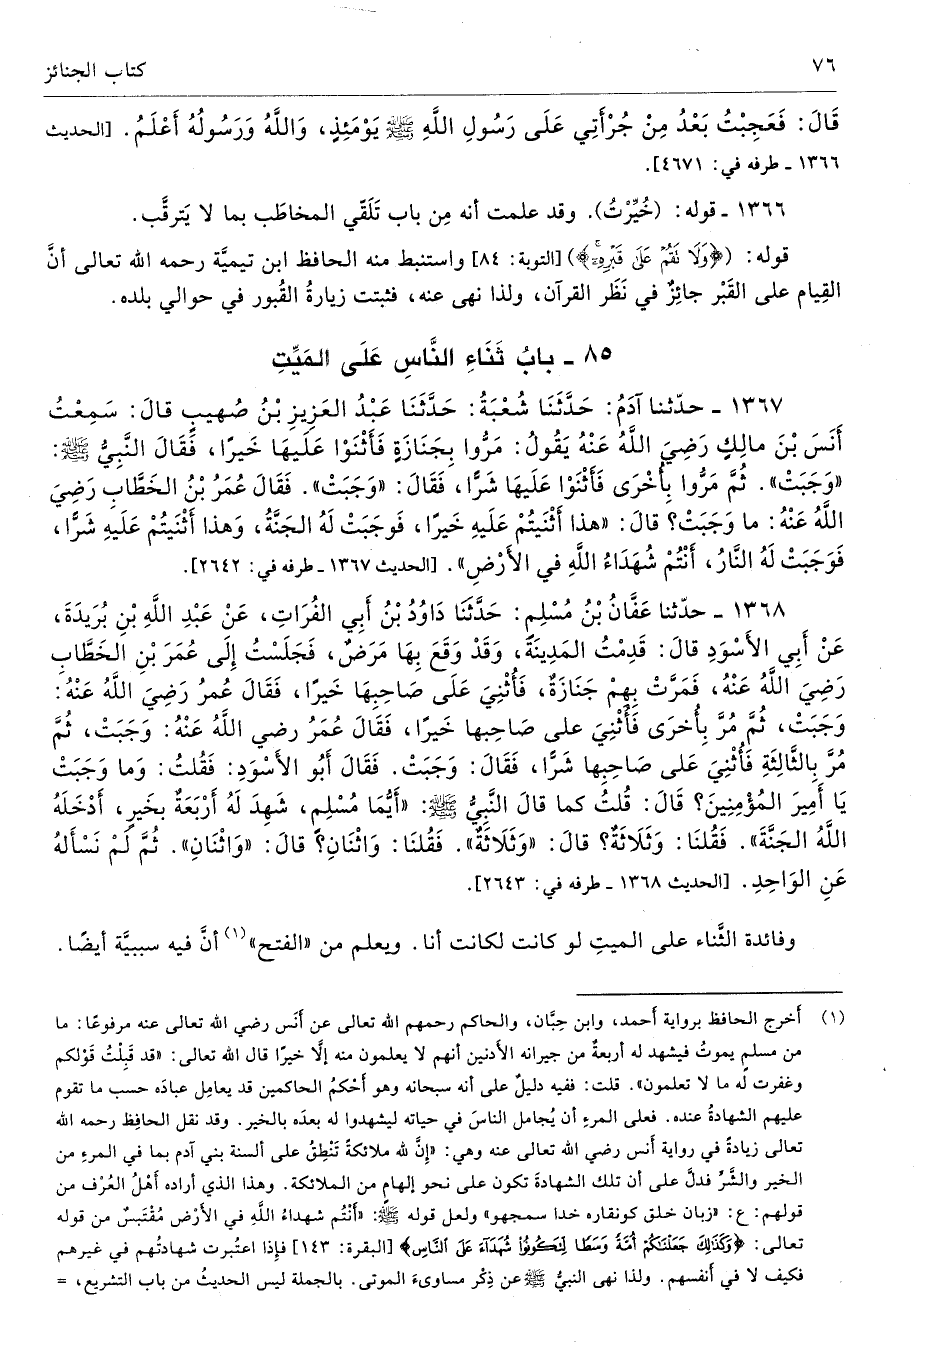 ٧٦
كتاب الجنائز
قَالَ: فَعَجِبْتُ بَعْدُ مِنْ جُرْأَتِي عَلَى رَسُولِ اللَّهِ ﷺ يَوْمَئِذٍ، وَاللَّهُ وَرَسُولُهُ أَعْلَمُ. [الحديث
١٣٦٦ ـ طرفه في: ٤٦٧١].
١٣٦٦ ـ قوله: (خُيِّرْتُ). وقد علمت أنه مِن باب تَلَقّي المخاطَب بما لا يَترقَّب.
قوله: (﴿وَلَا نَقُمۡ عَلَىٰ قَبۡرِهِۦٓۚ﴾) [التوبة: ٨٤] واستنبط منه الحافظ ابن تيميَّة رحمه الله تعالى أنَّ
القِيام على القَبْر جائِزٌ في نَظَر القرآن، ولذا نهى عنه، فثبتت زيارةُ القُبور في حوالي بلده.
٨٥ ـ بابُ ثَنَاءِ النَّاسِ عَلَى المَيِّتِ
١٣٦٧ ـ حدّثنا آدَمُ: حَدَّثَنَا شُعْبَةُ: حَدَّثَنَا عَبْدُ العَزِيزِ بْنُ صُهيبٍ قالَ: سَمِعْتُ
أَنَسَ بْنَ مالِكٍ رَضِيَ اللَّهُ عَنْهُ يَقُولُ: مَرُّوا بِجَنَازَةٍ فَأَثْنَوْا عَلَيهَا خَيرًا، فَقَالَ النَّبِيُّ ﷺ:
«وَجَبَتْ». ثُمَّ مَرُّوا بِأُخْرَى فَأَثْنَوْا عَلَيهَا شَرًّا، فَقَالَ: «وَجَبَتْ». فَقَالَ عُمَرُ بْنُ الخَطَّابِ رَضِيَ
اللَّهُ عَنْهُ: ما وَجَبَتْ؟ قالَ: «هذا أَثْنَيتُمْ عَلَيهِ خَيرًا، فَوجَبَتْ لَهُ الجَنَّةُ، وَهذا أَثْنَيتُمْ عَلَيهِ شَرًّا،
فَوَجَبَتْ لَهُ النَّارُ، أَنْتُمْ شُهَدَاءُ اللَّهِ في الأَرْضِ». [الحديث ١٣٦٧ ـ طرفه في: ٢٦٤٢].
١٣٦٨ ـ حدّثنا عَفَّانُ بْنُ مُسْلِمٍ: حَدَّثَنَا دَاوُدُ بْنُ أَبِي الفُرَاتِ، عَنْ عَبْدِ اللَّهِ بْنِ بُرَيدَةَ،
عَنْ أَبِي الأَسْوَدِ قالَ: قَدِمْتُ المَدِينَةَ، وَقَدْ وَقَعَ بِهَا مَرَضٌ، فَجَلَسْتُ إِلَى عُمَرَ بْنِ الخَطَّابِ
رَضِيَ اللَّهُ عَنْهُ، فَمَرَّتْ بِهِمْ جَنَازَةٌ، فَأُثْنِيَ عَلَى صَاحِبِهَا خَيرًا، فَقَالَ عُمرُ رَضِيَ اللَّهُ عَنْهُ:
وَجَبَتْ، ثُمَّ مُرَّ بِأُخرَى فَأُثْنِيَ على صَاحِبِها خَيرًا، فَقَالَ عُمَرُ رضي اللَّهُ عَنْهُ: وَجَبَتْ، ثُمَّ
مُرَّ بِالثَّالِثَةِ فَأُثْنِيَ عَلَى صَاحِبِها شَرًّا، فَقَالَ: وَجَبَتْ. فَقَالَ أَبُو الأَسْوَدِ: فَقُلتُ: وَما وَجَبَتْ
يَا أَمِيرَ المُؤْمِنِينَ؟ قَالَ: قُلتُ كما قالَ النَّبِيُّ ﷺ: «أَيُّمَا مُسْلِمٍ، شَهِدَ لَهُ أَرْبَعَةٌ بخَيرٍ، أَدْخَلَهُ
اللَّهُ الجَنَّةَ». فَقُلنَا: وَثَلَاثَةٌ؟ قالَ: «وَثَلَاثَةٌ». فَقُلنَا: وَاثْنَانِ؟ قالَ: «وَاثْنَانِ». ثُمَّ لَمْ نَسْأَلهُ
عَنِ الوَاحِدِ. [الحديث ١٣٦٨ ـ طرفه في: ٢٦٤٣].
وفائدة الثَّناء على الميتِ لو كانت لكانت أنا. ويعلم من «الفتح»(١) أنَّ فيه سببيَّة أيضًا.
(١) أخرج الحافظ برواية أحمد، وابن حِبَّان، والحاكم رحمهم الله تعالى عن أنَس رضي الله تعالى عنه مرفوعًا: ما
من مسلم يموتُ فيشهد له أربعةٌ من جيرانه الأدنين أنهم لا يعلمون منه إلَّا خيرًا قال الله تعالى: «قد قَبِلْتُ قَوْلكم
وغفرت له ما لا تعلمون». قلت: ففيه دليلٌ على أنه سبحانه وهو أحْكمُ الحاكمين قد يعامِل عبادَه حسب ما تقوم
عليهم الشهادةُ عنده. فعلى المرءِ أن يُجامل الناسَ في حياته ليشهدوا له بعدَه بالخير. وقد نقل الحافِظ رحمه الله
تعالى زيادةً في رواية أنس رضي الله تعالى عنه وهي: «إنَّ لله ملائكةً تَنْطِقُ على ألسنة بني آدم بما في المرءِ من
الخير والشَّرِّ فدلَّ على أن تلك الشهادةَ تكون على نحو إلهامٍ من الملائكة. وهذا الذي أراده أهْلُ العُرْف من
قولهم: ع: «زبان خلق كونقاره خدا سمجهو» ولعل قوله ﷺ: «أنتُم شهداءُ اللَّهِ في الأرْض مُقْتَبسٌ من قوله
تعالى: ﴿وَكَذَٰلِكَ جَعَلۡنَٰكُمۡ أُمَّةٗ وَسَطٗا لِّتَكُونُواْ شُهَدَآءَ عَلَى ٱلنَّاسِ﴾ [البقرة: ١٤٣] فإذا اعتُبرت شهادتُهم في غيرهم
فكيف لا في أنفسهم. ولذا نهى النبيُّ ﷺ عن ذِكْر مساوىء الموتى. بالجملة ليس الحديثُ من باب التشريع، =